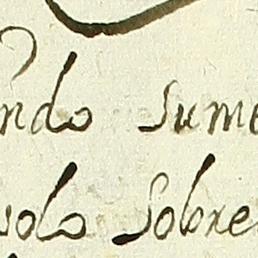 ndo sume
solo sobre